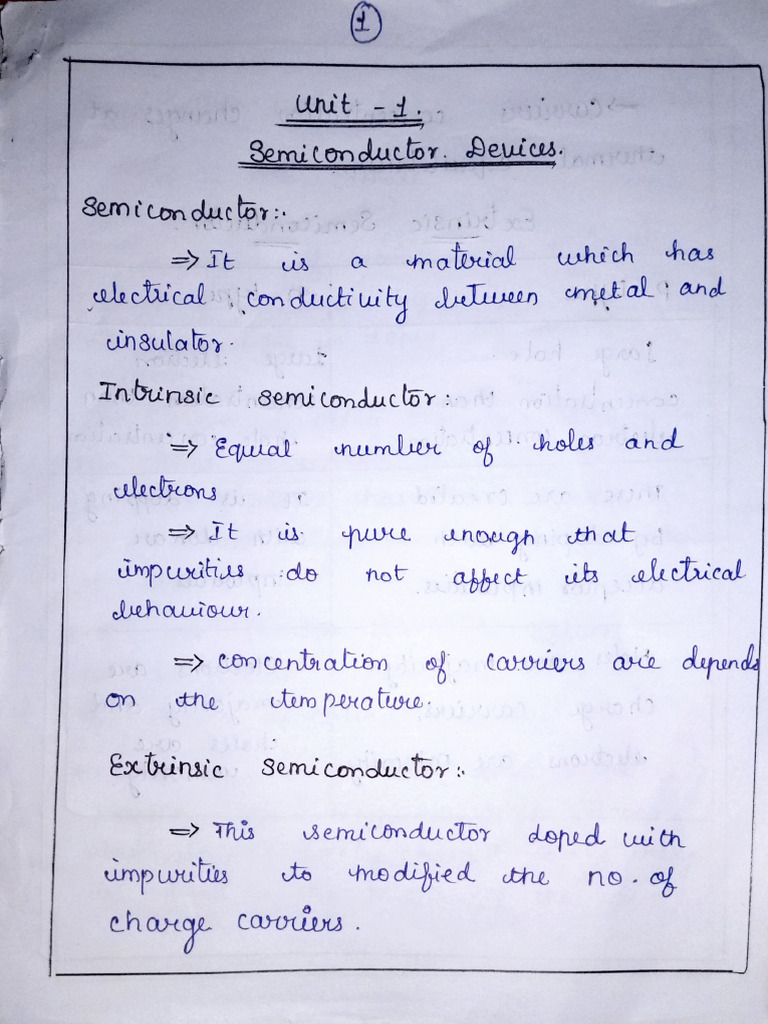 1
Unit - 1.
Semiconductor Devices.
Semiconductor:-
⇒ It is a material which has
electrical conductivity between metal and
insulator.
Intrinsic semiconductor:
⇒ Equal number of holes and
electrons
⇒ It is pure enough that
impurities do not affect its electrical
behaviour.
⇒ concentration of carriers are depends
on the temperature.
Extrinsic semiconductor:-
⇒ This semiconductor doped with
impurities to modified the no. of
charge carriers.